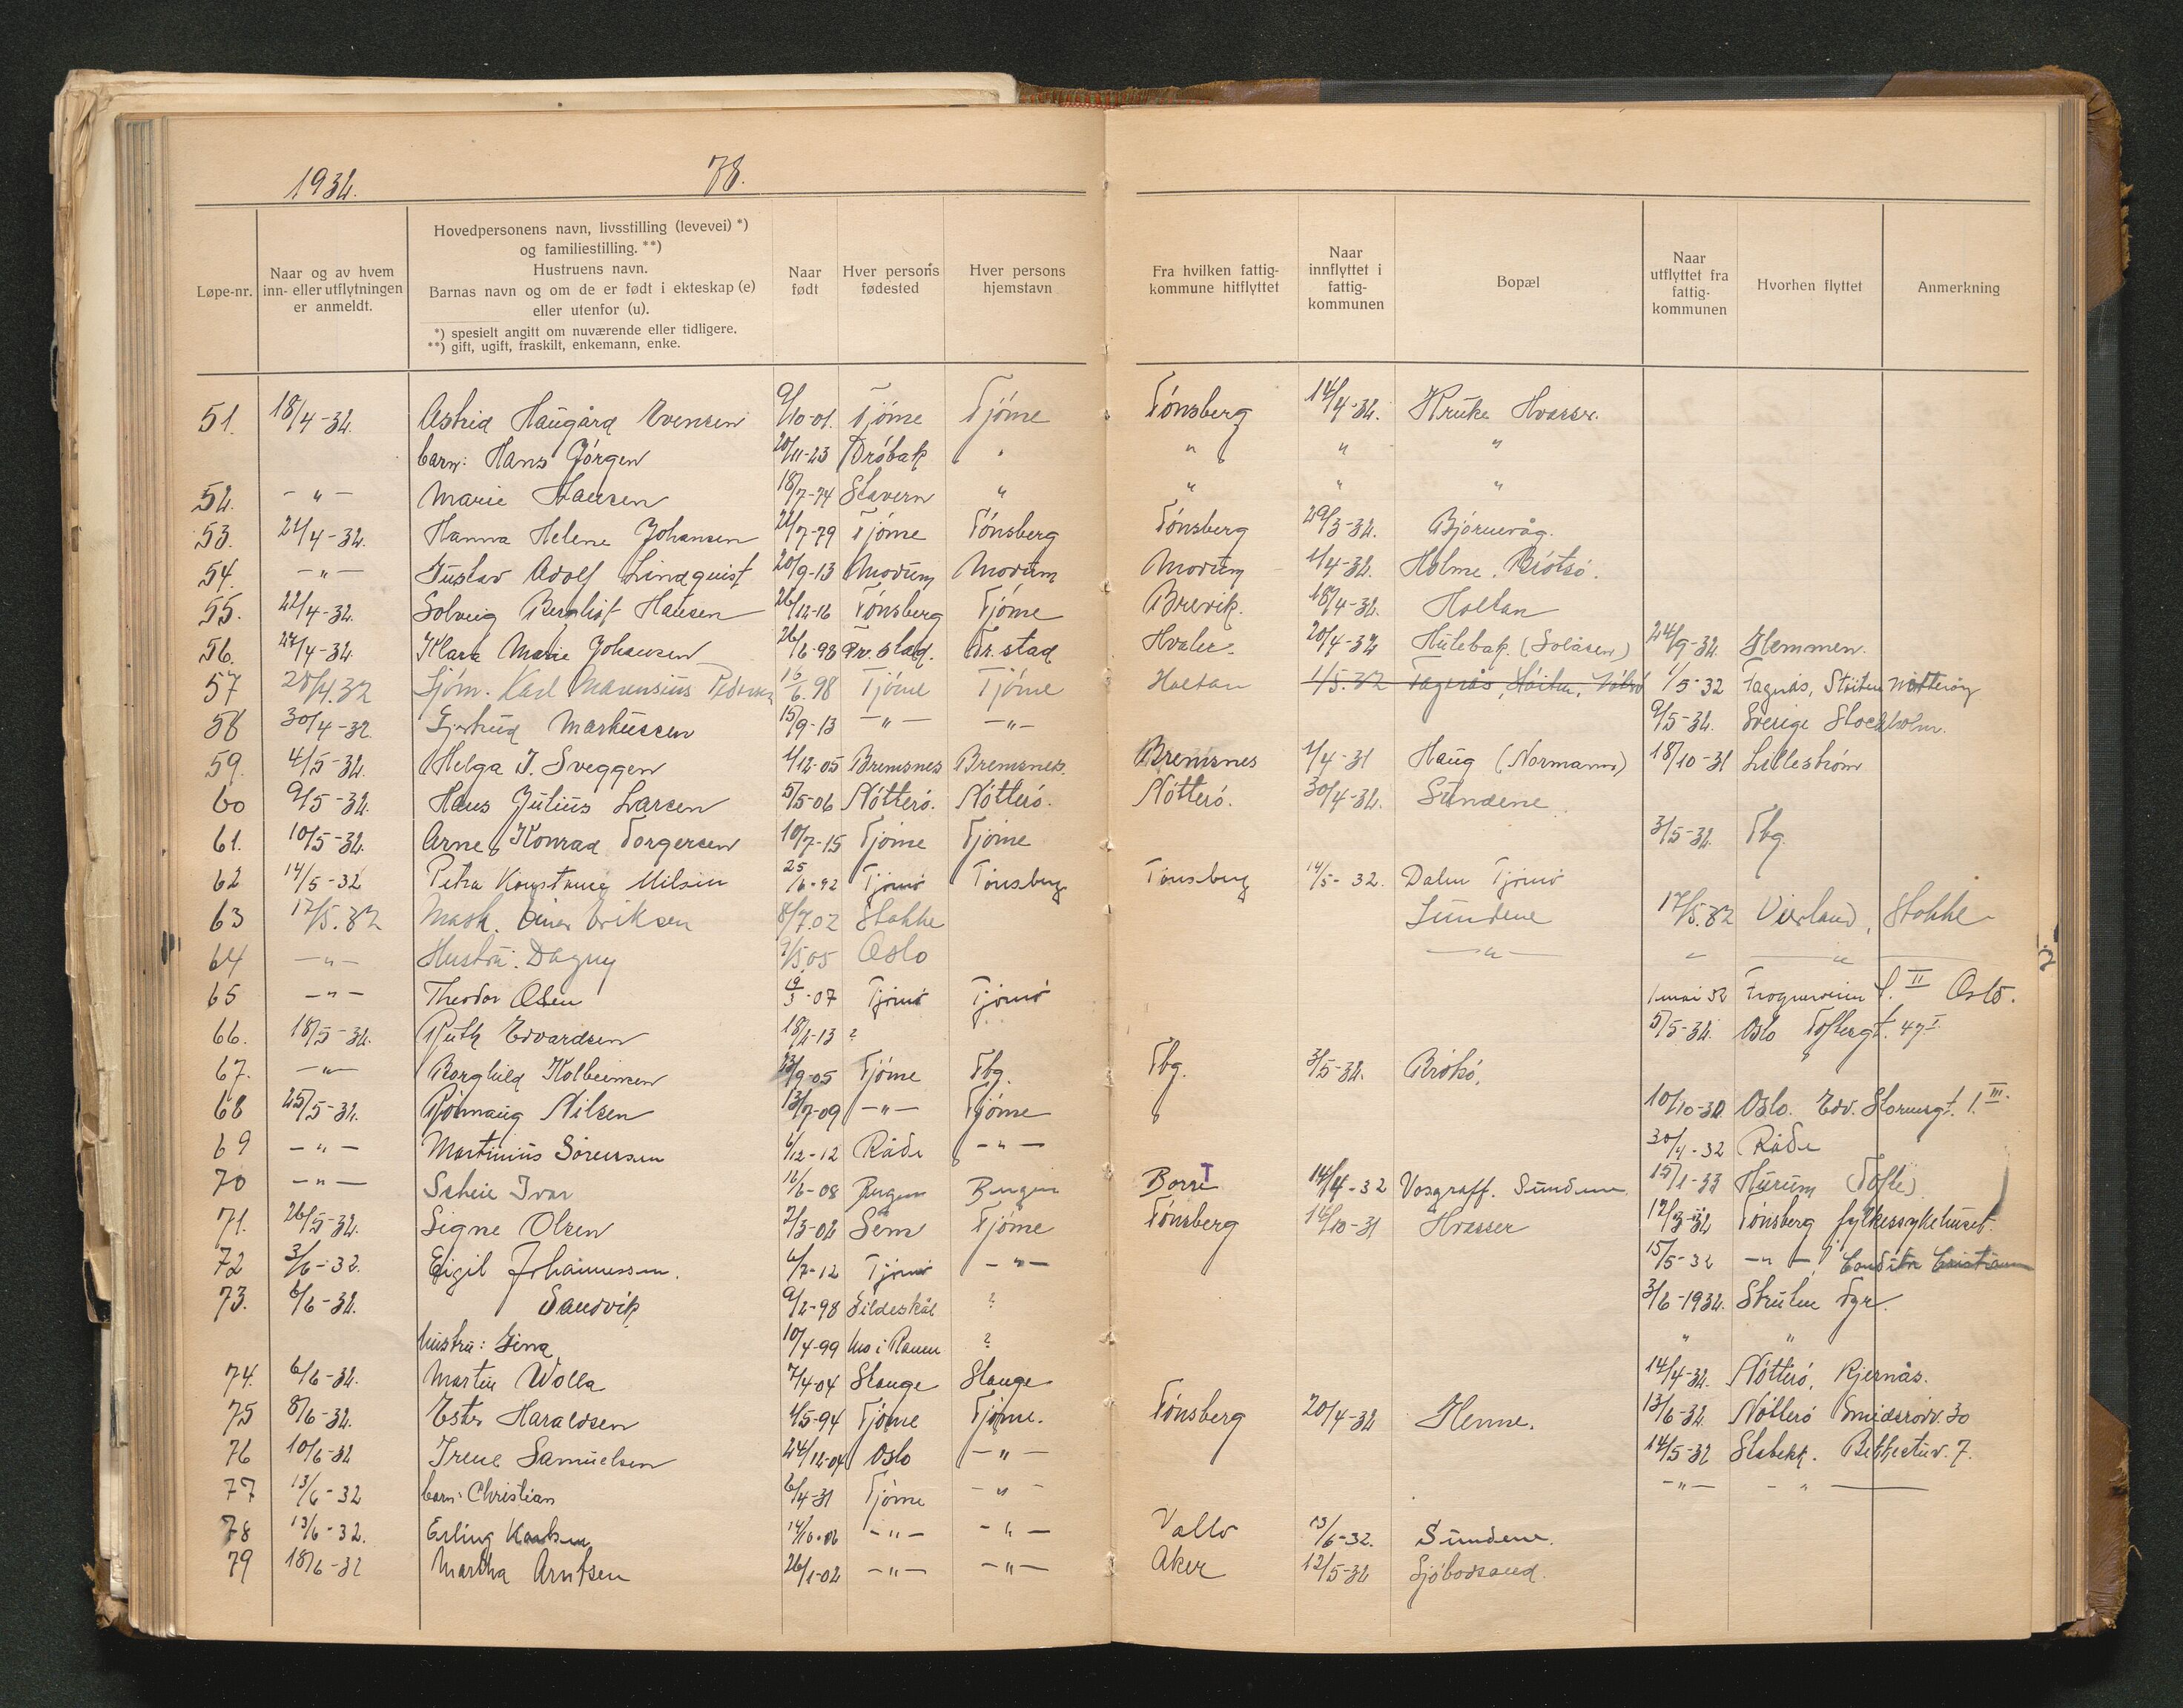 1932. 78.
Løpe-nr.
Naar og av hvem
inn- eller utflytningen
er anmeldt.
Hovedpersonens navn, livsstilling (levevei) *)
og familiestilling. **)
Hustruens navn.
Barnas navn og om de er født i ekteskap (e)
eller utenfor (u).
*) spesielt angitt om nuværende eller tidligere.
**) gift, ugift, fraskilt, enkemann, enke.
Naar
født
Hver persons
fødested
Hver persons
hjemstavn
Fra hvilken fattig-
kommune hitflyttet
Naar
innflyttet i
fattig-
kommunen
Bopæl
Naar
utflyttet fra
fattig-
kommunen
Hvorhen flyttet
Anmerkning
51. 18/4-32. Astrid Haugård Evensen 9/10-01. Tjöme Tjöme Tönsberg 14/4-32. Kruke Hvasser.
barn: Hans Jörgen 20/11-23 Dröbak " " " "
52. -"- Marie Hansen 18/7-74 Stavern " " " "
53. 21/4-32. Hanna Helene Johansen 21/7-79 Tjöme Tönsberg Tönsberg 29/3-32. Björnevåg.
54. -"- Gustav Adolf Lindquist 20/9-13 Modum Modum Modum 1/4-32. Holme. Brötsö.
55. 22/4-32. Solveig Bergliot Hansen 26/12-16 Tönsberg Tjöme Brevik. 18/4-32. Holtan
56. 27/4-32. Klara Marie Johansen 26/6-98 Fr.stad. Fr.stad Hvaler. 20/4-32 Hulebak. (Solåsen) 24/9-32. Glemmen.
57 28/4.32 Sjöm. Karl Marensius Pedersen 15/6.98 Tjöme Tjöme Holtan 1/5.32 Fagerås, Stöiten, 1/5-32 Fagerås, Stöiten Nötteröy
58 30/4-32. Gjertrud Markussen 15/9-13 -"- -"- 9/5-32. Sverige Stockholm.
59. 4/5-32. Helga J. Sveggen 1/12-05 Bremsnes Bremsnes. Bremsnes 1/4-31 Haug (Normann) 18/10-31 Lilleström
60 9/5-32. Hans Julius Larsen 5/5-06 Nötterö. Nötterö. Nötterö. 30/4-32. Sundene.
61. 10/5-32. Arne Konrad Torgersen 10/7-15 Tjöme Tjöme 3/5-32. Tbg.
62 14/5-32 Petra Konstanse Nilsen 25/6-92 Tjömö Tönsberg Tönsberg 14/5-32. Dalen Tjömö
63 17/5.32 Mask. Einar Eriksen 8/7.02 Stokke Sundene 17/5.32 Vierland, Stokke
64 -"- Hustru: Dagny 7/5 05 Oslo -"- " "
65 -"- Theodor Olsen 19/3-07 Tjömö Tjömö 1 mai 32 Frognerveien 1. II Oslo.
66. 18/5-32. Ruth Edvardsen 18/2-13 ? 5/5-32. Oslo Toftesgt. 47 I
67. -"- Borghild Kolbeinsen 23/9-05 Tjöme Tbg. Tbg. 3/5-32. Brötsö.
68 25/5-32. Rönnaug Nilsen 13/7-09 -"- Tjöme 10/10-30 Oslo. Edv. Stormsgt. 1. III.
69 -"- Martinius Sörensen 6/12-12 Råde -"- 30/4-32 Råde
70 -"- Scheie Ivar 16/6-08 Bergen Bergen Borre T 14/4-32 Vosgraff. Sundene. 15/1-33 Hurum (Tofte)
71. 26/5-32. Signe Olsen 2/3-02 Sem Tjöme Tönsberg 14/10-31 Hvasser 12/3-32 Tönsberg fylkessykehuset.
72 3/6-32. Eigil Johannessen. 6/7-12 Tjömö -"- 15/5-32 -"-
73. 6/6-32. Sandvik 9/2-98 Gildeskål ? 3/6-1932. Struten Fyr.
hustru: Gina 10/4-99 Mo i Ranen ? " "
74. 6/6-32. Martin Wolla 7/4-04 Stange Stange 14/4-32. Nötterö, Kjernås.
75 8/6-32. Ester Haraldsen 1/5-94 Tjöme Tjöme. Tönsberg 20/4-32 Glenne. 13/6-32. Nötterö Smidsrödv. 30
76 10/6-32 Irene Samuelsen 24/12-04 Oslo -"- 14/5-32 Stabekk. Bekkestuv. 7.
77 13/6-32 barn: Christian 6/4-31 Tjöme -"- -"- -"-
78 13/6-32. Erling 14/10-06 -"- -"- Vallö 13/6-32. Sundene.
79 18/6-32 Martha Arntsen 26/1-02 -"- -"- Aker 12/5-32 Sjöbodsand.